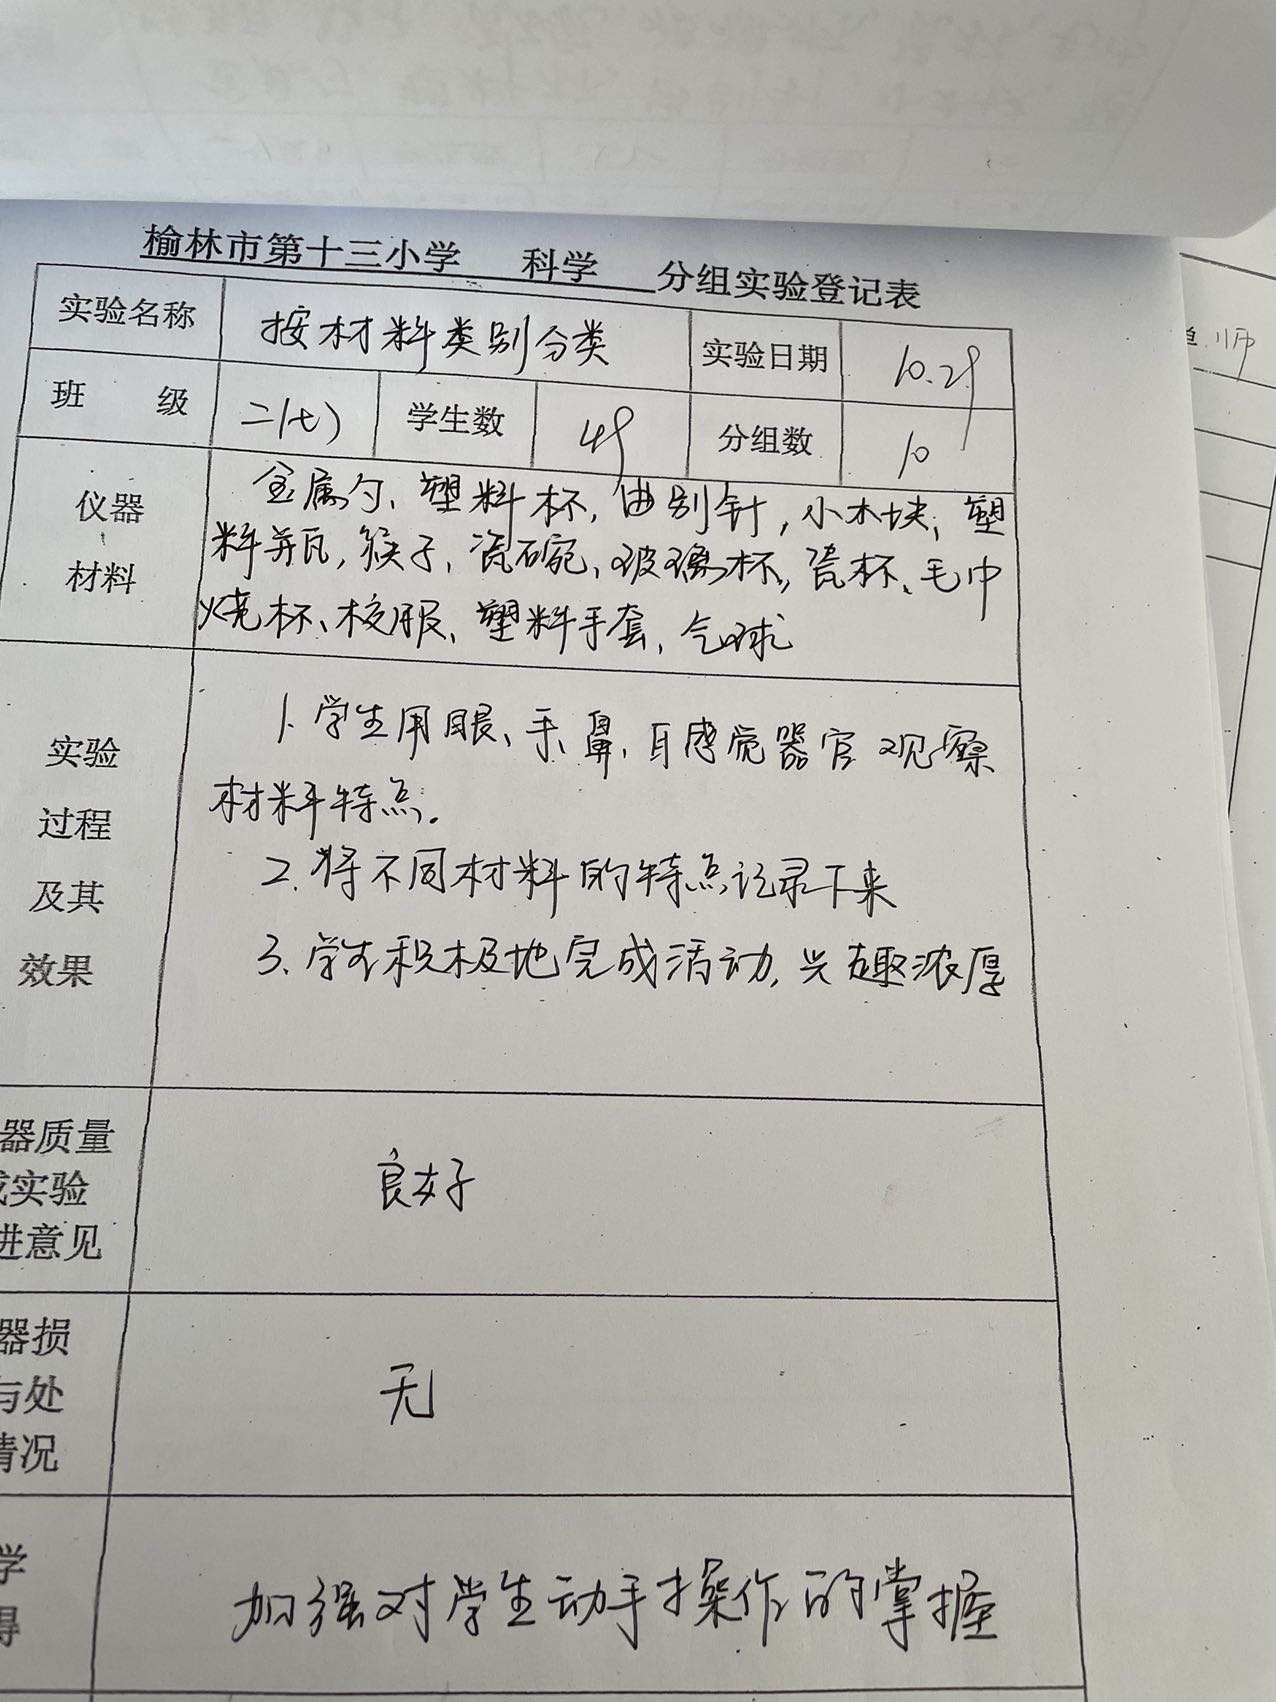 榆林市第十三小学 科学 分组实验登记表
实验名称 按材料类别分类 实验日期 10.29
班 级 二(七) 学生数 49 分组数 10
仪器 材料
金属勺、塑料杯,曲别针,小木块,塑
料瓶,筷子、瓷碗、玻璃杯,瓷杯、毛巾
烧杯、校服、塑料手套,气球
实验
过程
及其
效果
1.学生用眼、手、鼻、耳感觉器官观察
材料特点.
2.将不同材料的特点记录下来
3.学生积极地完成活动,兴趣浓厚
器质量
实验
进意见
良好
器损
与处
情况
无
学
得
加强对学生动手操作的掌握